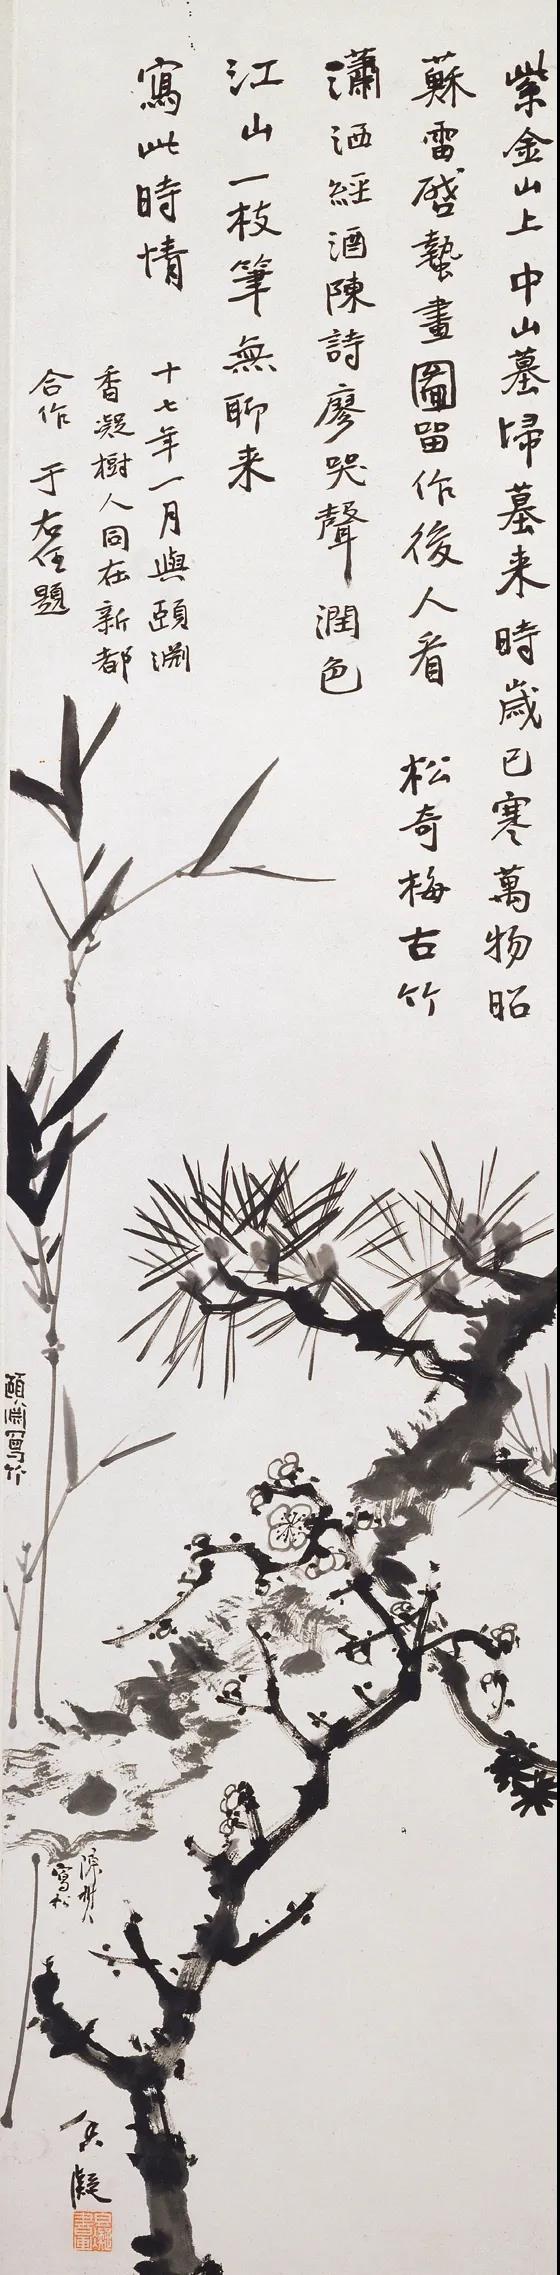 紫金山上中山墓掃墓来時歲已寒萬物昭
蘇雷啓蟄畫圖留作後人看 松奇梅古竹
瀟洒經酒陳詩廖哭聲 潤色
江山一枝筆無聊来
寫此時情
十七年一月與頤淵
香凝樹人同在新都
合作 于右任題
頤淵寫竹
陳樹人
寫松
香凝